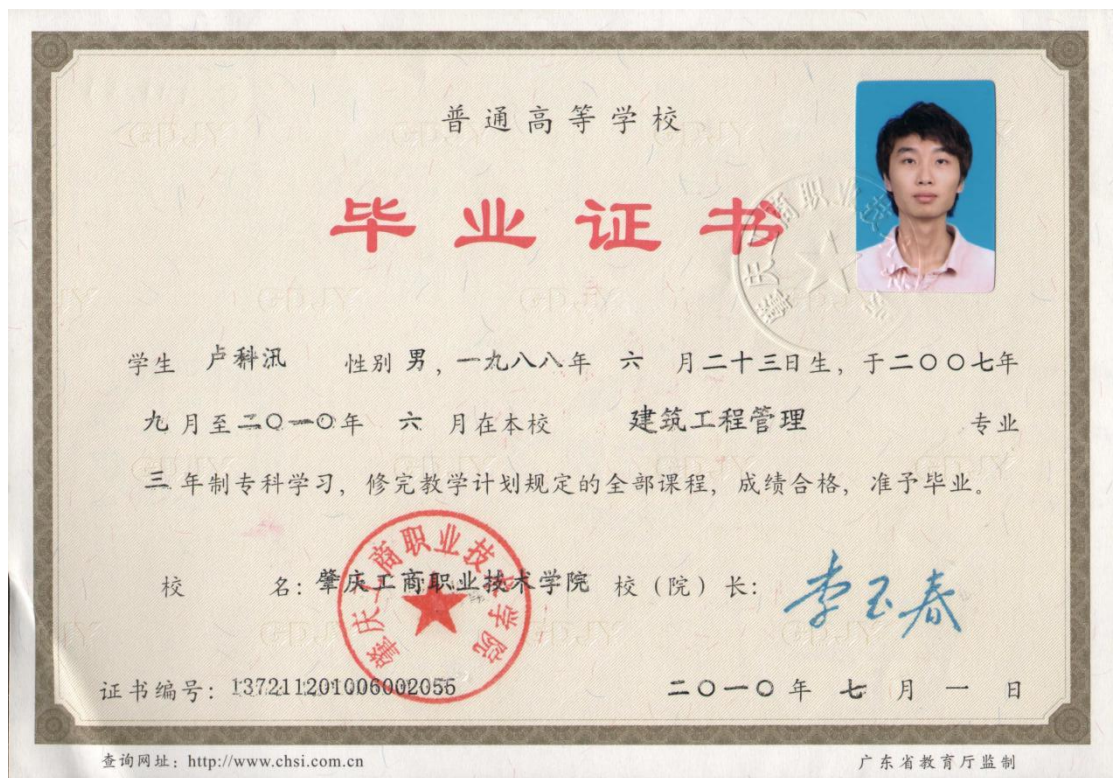 普通高等学校
毕业证书
学生 卢科汛 性别 男，一九八八年 六 月二十三日生，于二〇〇七年
九 月至二〇一〇年 六 月在本校 建筑工程管理 专业
三 年制专科学习，修完教学计划规定的全部课程，成绩合格，准予毕业。
校 名：肇庆工商职业技术学院 校（院）长：李玉春
肇庆工商职业技术学院
证书编号：137211201006002055 二〇一〇年 七 月 一 日
查询网址：http://www.chsi.com.cn 广东省教育厅监制